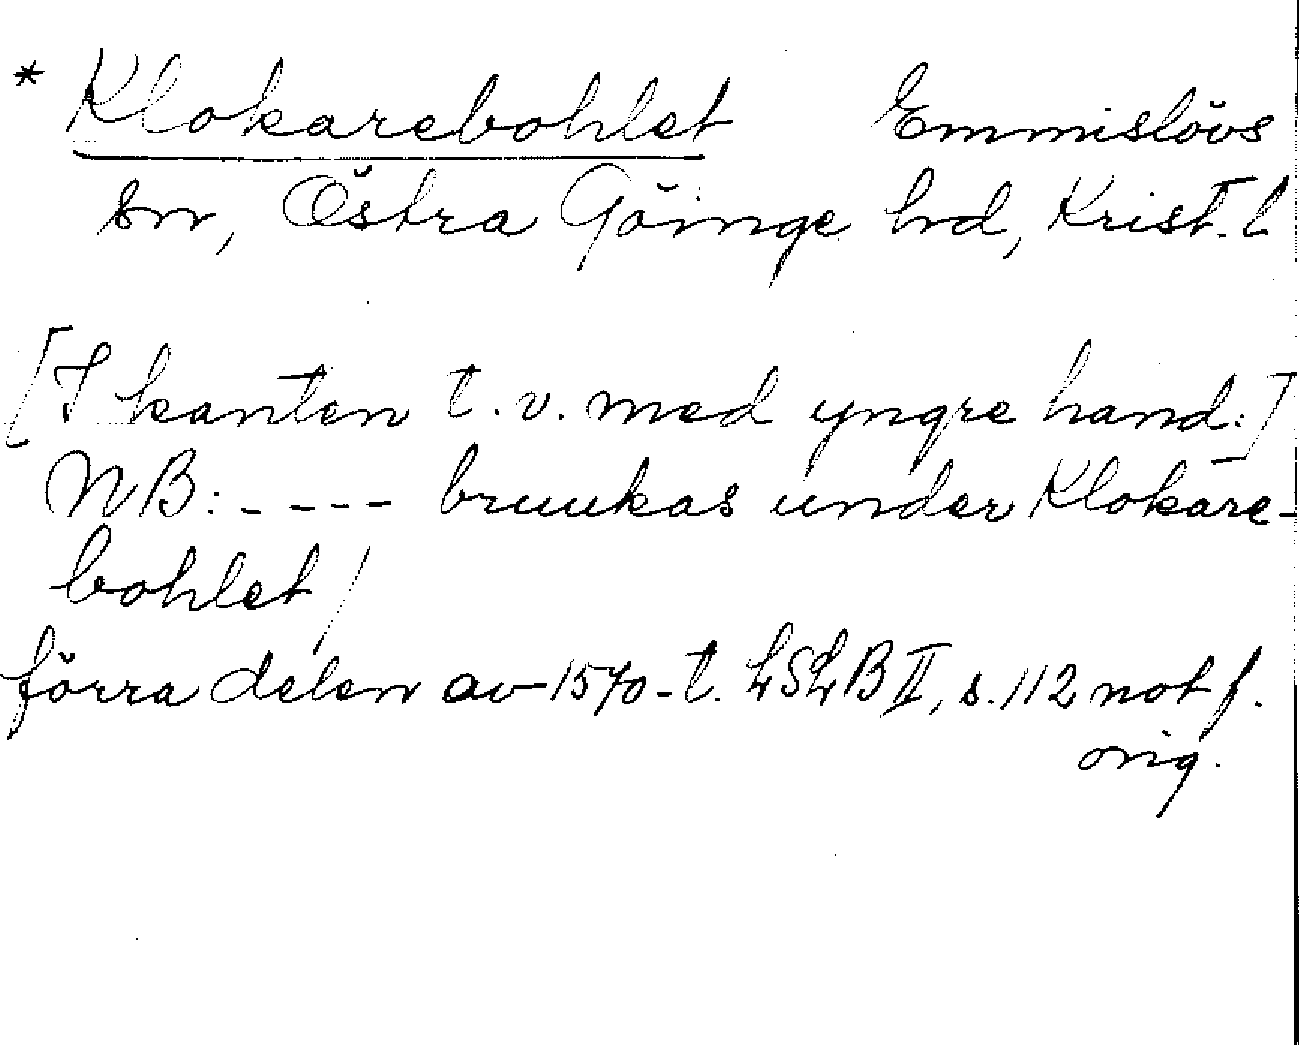 * Klokarebohlet Emmislövs
sn, Östra Göinge hd, Krist. l
[I kanten t.v. med yngre hand:]
NB: - - - - bruukas under Klokare-
bohlet /
förra delen av 1570-t. LSLB II, s. 112 not f.
orig.